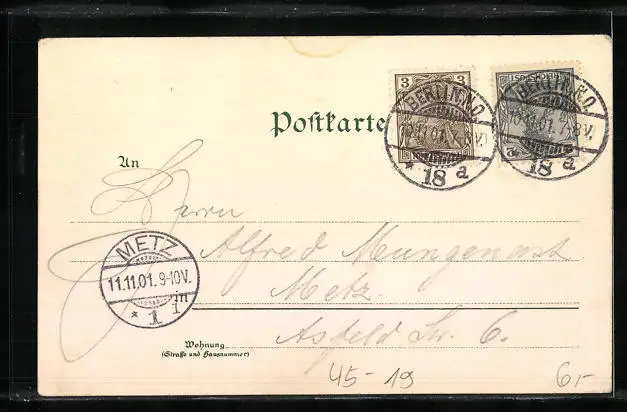 3 3
BERLIN N.O.
10.11.01. 7-8V.
* 18 a
2
BERLIN N.O.
10.11.01. 7-8V.
* 18 a
Postkarte
An
Herrn
Alfred Mungenast
METZ
11.11.01. 9-10V.
* 1 i
in
Metz.
Wohnung
(Straße und Hausnummer)
Asfeld Str. 6.
45-19
6,-